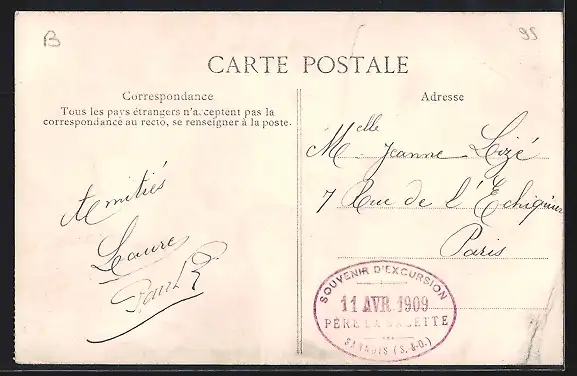 B
95
CARTE POSTALE
Correspondance
Tous les pays étrangers n'acceptent pas la
correspondance au recto, se renseigner à la poste.
Adresse
Amitiés
Laure
Mcelle Jeanne Lizé
7 Rue de l'Echiquier
Paris
SOUVENIR D'EXCURSION
11 AVR 1909
PÈRE LA GALETTE
SANNOIS (S.-&-O.)